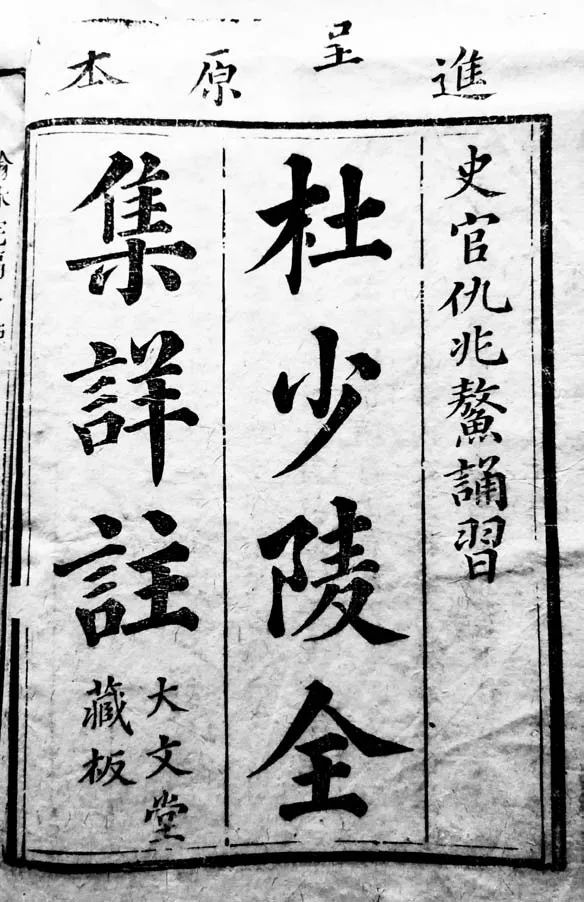 進呈原本
史官仇兆鰲誦習
杜少陵全
集詳註
大文堂
藏板